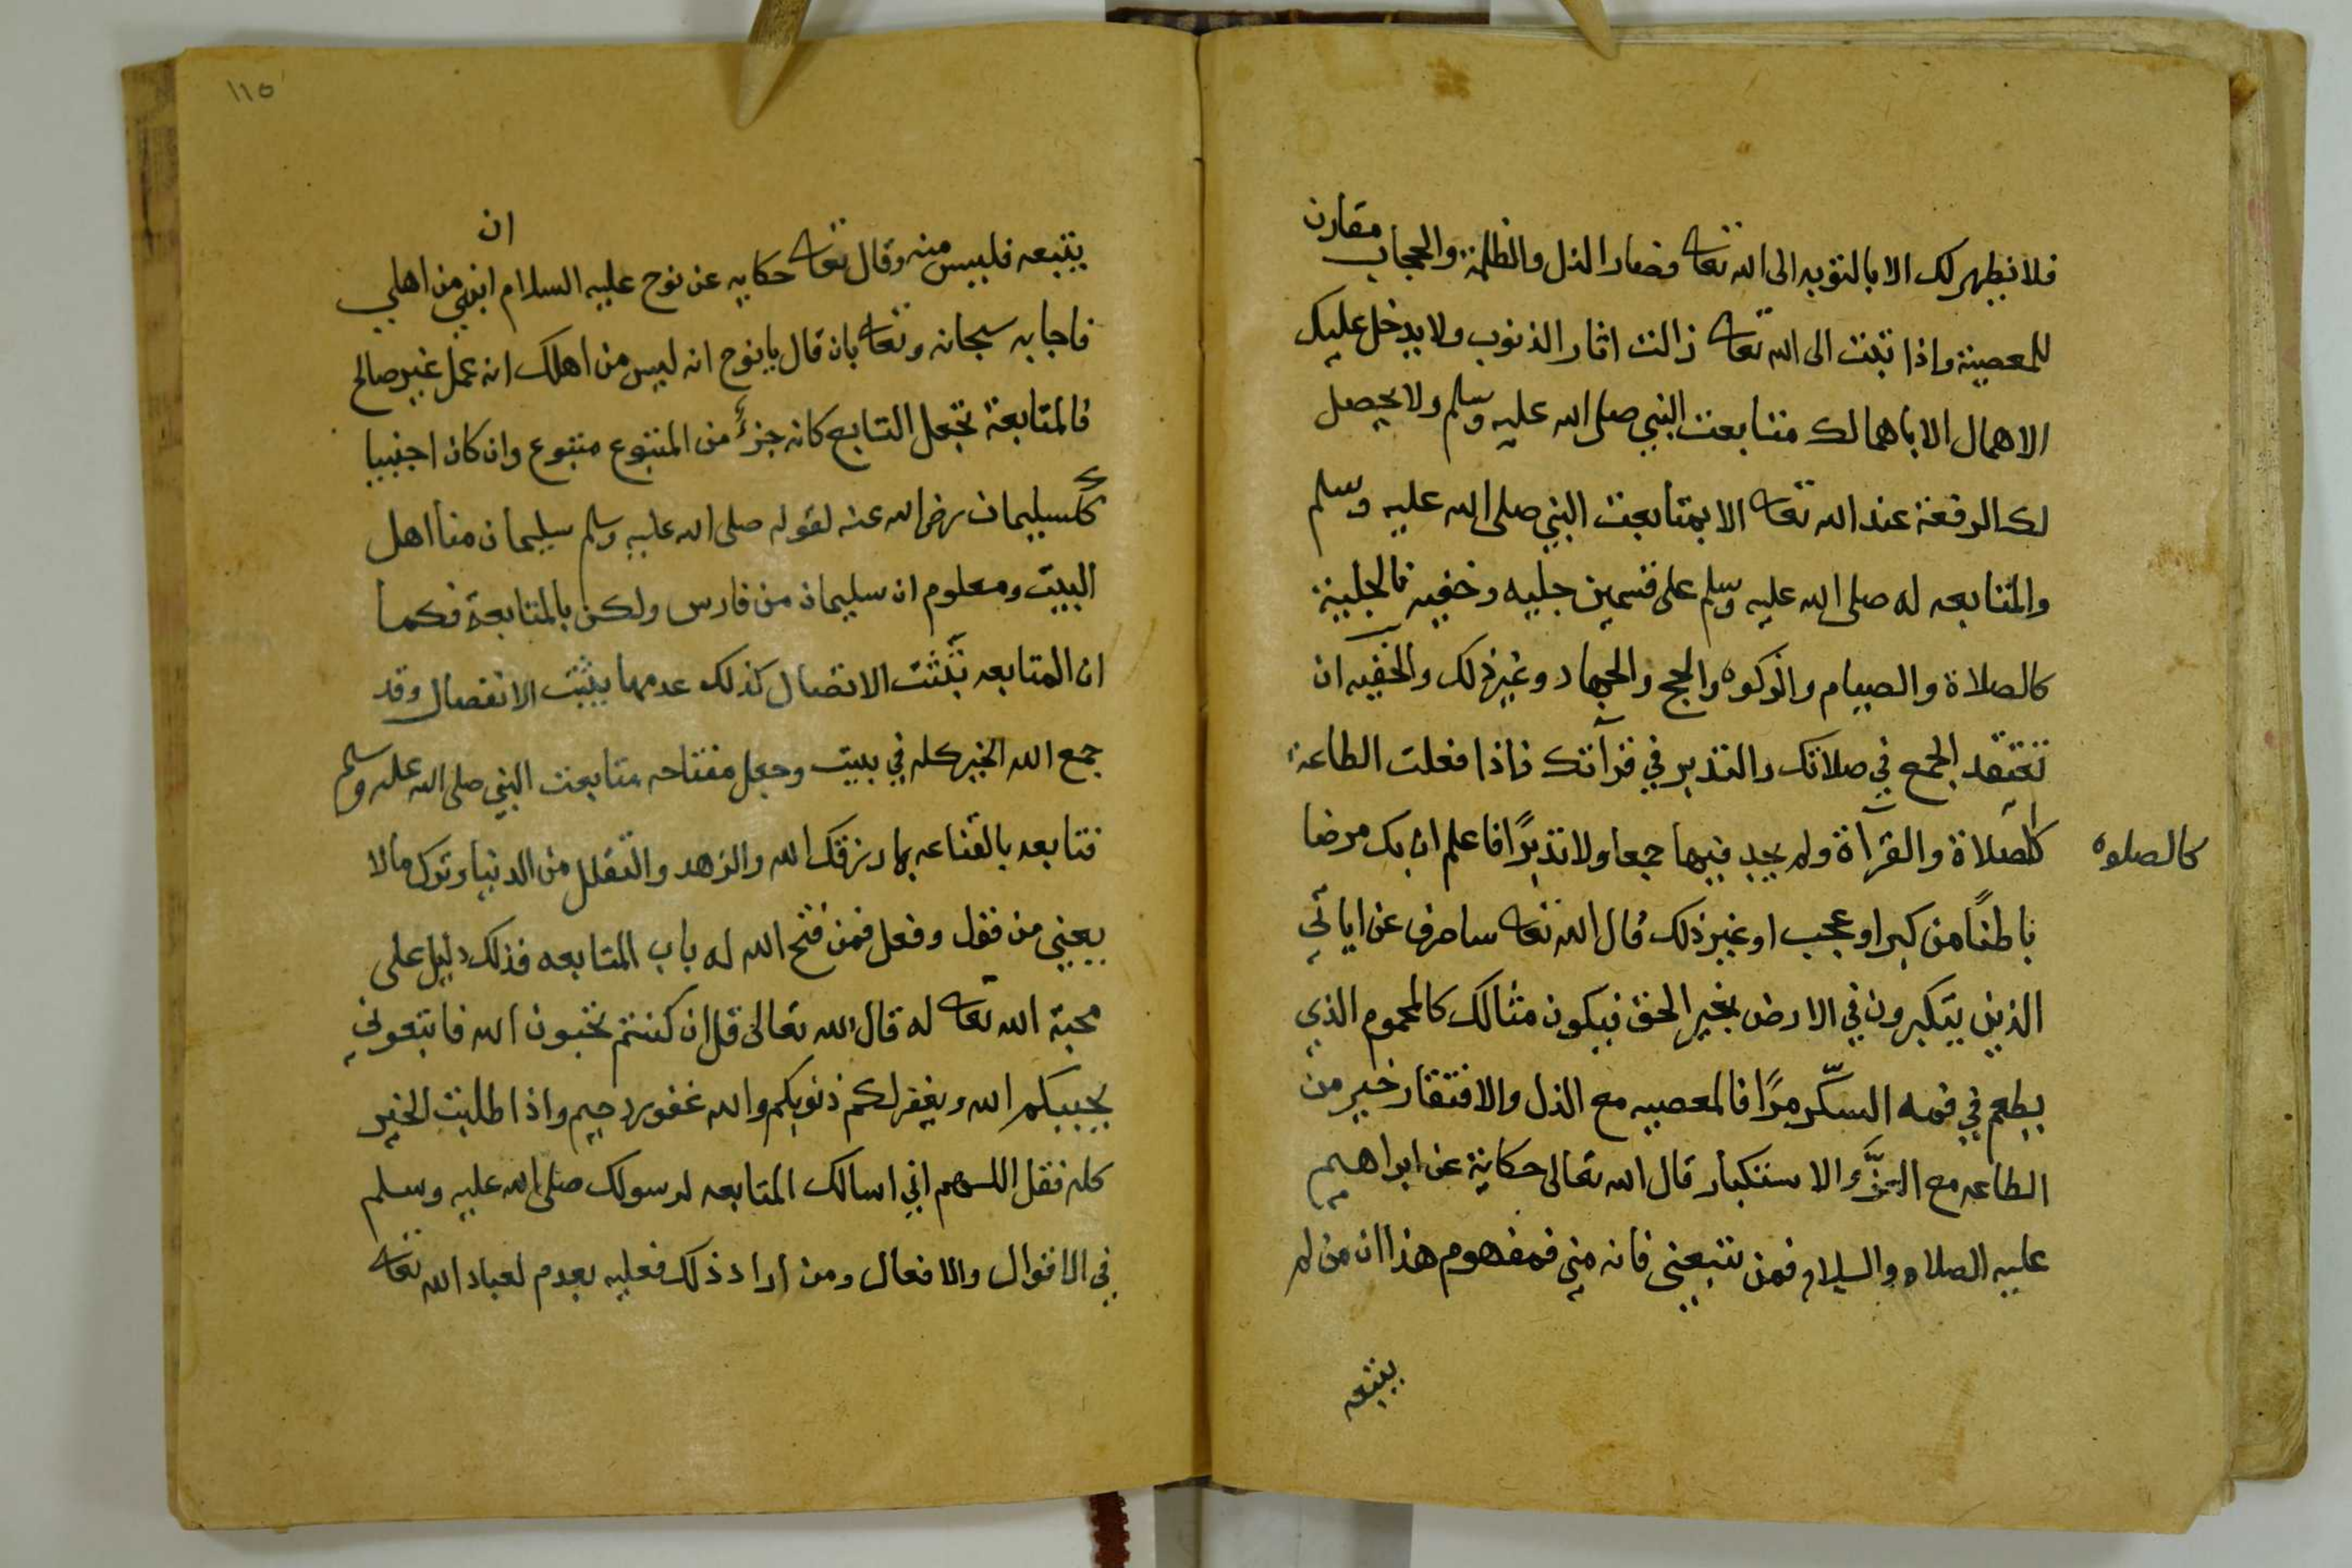 فلا تطهر لك الا بالتوبه الى الله تعالى فصار الذل والظلمة والحجاب مقارن
للمعصية واذا تبت الى الله تعالى زالت اثار الذنوب ولا يدخل عليك
الاهمال الا باهمالك متابعت النبي صلى الله عليه وسلم ولا يحصل
لك الرفعة عند الله تعالى الا بمتابعت النبي صلى الله عليه وسلم
والمتابعه له صلى الله عليه وسلم على قسمين جليه وخفيه فالجلية
كالصلاة والصيام والزكوه والحج والجهاد وغير ذلك والخفيه ان
تعتقد الجمع في صلاتك والتدبر في قرآتك فاذا فعلت الطاعة
كالصلاة والقرآة ولم يجد فيها جمعا ولا تدبرًا فاعلم ان بك مرضا
كالصلوه
باطنًا من كبر او عجب او غير ذلك قال الله تعالى ساصرف عن اياتي
الذين يتكبرون في الارض بغير الحق فيكون مثالك كالمحموم الذي
يطعم في فمه السكّر مرًا فالمعصيه مع الذل والافتقار خير من
الطاعه مع العزّ والاستكبار قال الله تعالى حكاية عن ابراهيم
عليه الصلاه والسلام فمن تتبعني فانه مني فمفهوم هذا ان من لم
يتبعه
١١٥
يتبعه فليس منه وقال تعالى حكايه عن نوح عليه السلام ان ابني من اهلي
فاجابه سبحانه وتعالى بان قال يا نوح انه ليس من اهلك انه عمل غير صالح
فالمتابعة تجعل التابع كانه جزءٌ من المتبوع متبوع وان كان اجنبيا
كسليمان رضي الله عنه لقوله صلى الله عليه وسلم سليمان منا اهل
البيت ومعلوم ان سليمان من فارس ولكن بالمتابعة فكما
ان المتابعه تثبت الاتصال كذلك عدمها يثبت الانفصال وقد
جمع الله الخير كله في بيت وجعل مفتاحه متابعت النبي صلى الله عليه وسلم
فتابعه بالقناعه بما رزقك الله والزهد والتقلل من الدنيا وترك مالا
يعني من فقول وفعل فمن فتح الله له باب المتابعه فذلك دليل على
محبة الله تعالى له قال الله تعالى قل ان كنتم تحبون الله فاتبعوني
يحببكم الله ويغفر لكم ذنوبكم والله غفور رحيم واذا طلبت الخير
كله فقل اللهم اني اسالك المتابعه لرسولك صلى الله عليه وسلم
في الاقوال والافعال ومن اراد ذلك فعليه بعدم لعباد الله تعالى